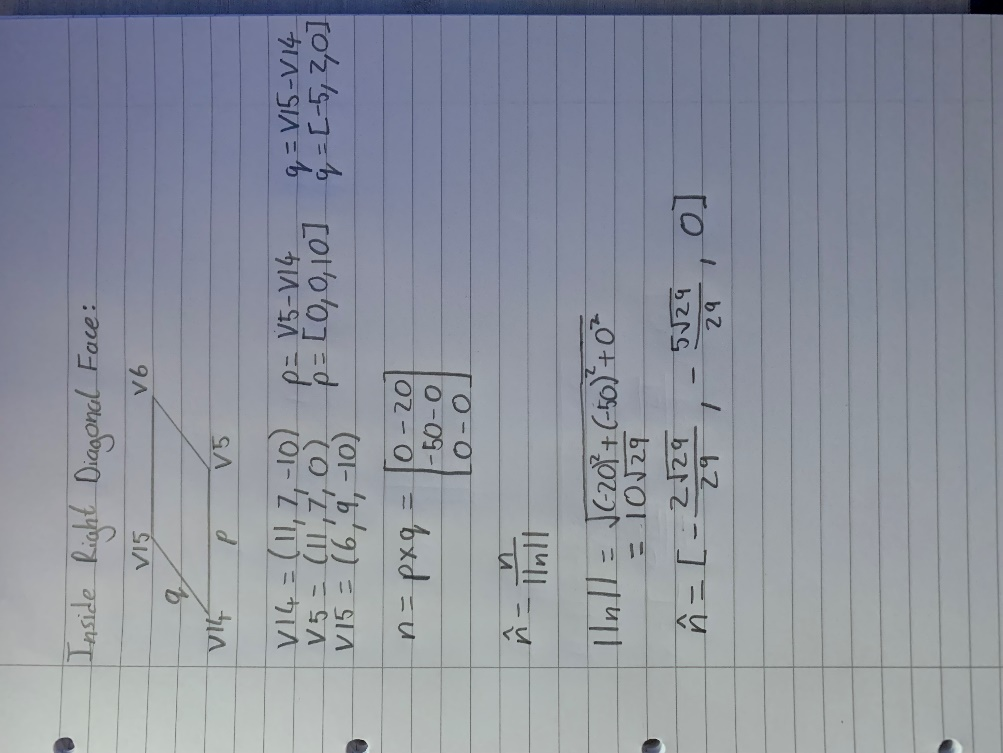 Inside Right Diagonal Face:
V15 V6
q
V14 p V5
V14 = (11, 7, -10) p = V5-V14 q = V15-V14
V5 = (11, 7, 0) p = [0, 0, 10] q = [-5, 2, 0]
V15 = (6, 9, -10)
n = p×q = [0 - 20
-50 - 0
0 - 0]
n̂ = n/||n||
||n|| = √((-20)² + (-50)² + 0²)
= 10√29
n̂ = [- 2√29/29 , - 5√29/29 , 0]